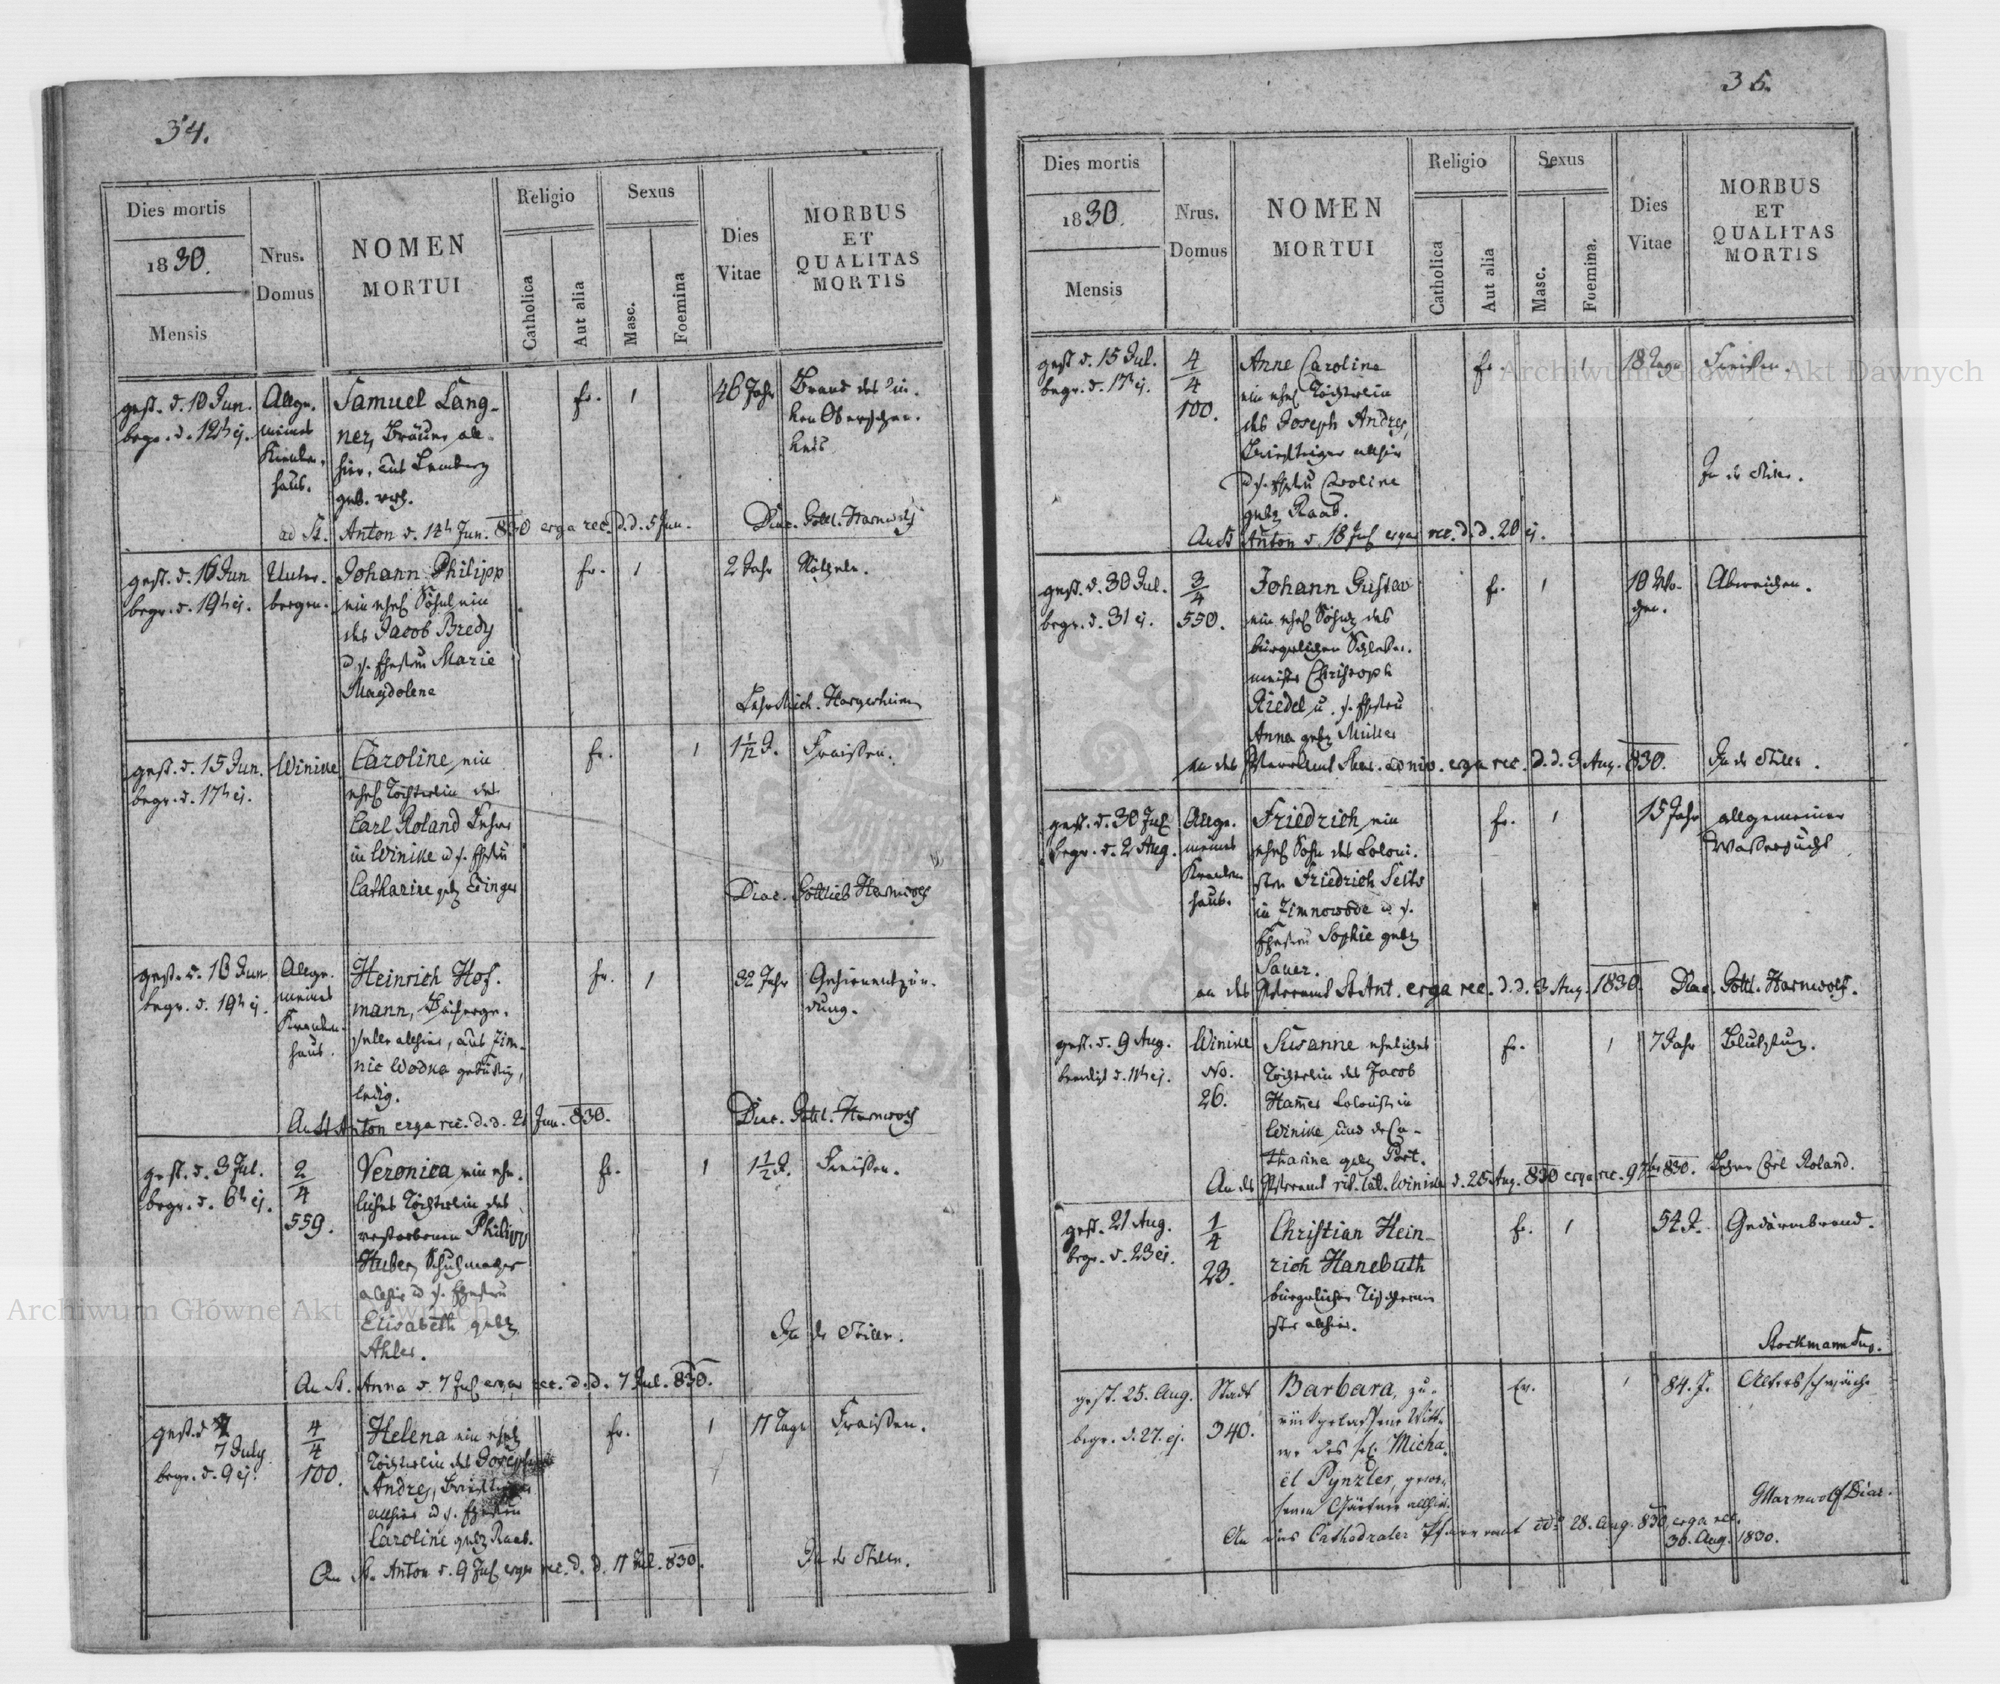 34.
Dies mortis
1830.
Mensis
Nrus.
Domus
NOMEN
MORTUI
Religio
Catholica
Aut alia
Sexus
Masc.
Foemina
Dies
Vitae
MORBUS
ET
QUALITAS
MORTIS
gest. d. 10 Jun.
begr. d. 12th ej.
Allge-
meines
Kranken-
haus.
Samuel Lang-
ner, Bräuer al-
hier, aus Lemberg
geb.
46 Jahr
Brand des lin-
ken Oberschen-
kels
ad St. Anton d. 14th Jun. 830 erga rec. d. d. 5 Jun.
Diac. Gottl. Harnwolf
gest. d. 16 Jun
begr. d. 19th ej.
Unter-
bergen.
Johann Philipp
ein ehel Söhnlein
des Jacob Bredy
u. s. Ehefrau Marie
Magdolena
2 Jahr
Rötheln.
gest. d. 15 Jun.
begr. d. 17th ej.
Winike
Caroline, ein
ehel Töchterlein des
Carl Roland Lehrer
in Winike u. s. Ehefrau
Catharine geb.
1 1/12 J.
Fraißen.
Diac. Gottlieb Harnwolf
begr. d. 19th ej.
Allge-
meines
Kranken-
haus.
Heinrich Hof-
mann, Bäckerge-
selle alhier, aus Zim-
nie Wodna gebürtig,
ledig.
32 Jahr
Gehirnentzün-
dung.
An St Anton erga rec. d. d. 21 Jun. 830.
Diac. Gottl. Harnwolf
gest. d. 3 Jul.
begr. d. 6th ej.
2
4
559.
Veronica ein ehe-
liches Töchterlein des
verstorbenen Philipp
Huber, Schuhmacher
alhier u. s. Ehefrau
Elisabeth geb.
Ahles.
1 1/2 J.
Fraißen.
In der Stille.
An St. Anna d. 7 Jul erga rec. d. d. 7 Jul. 830.
gest. d.
7 July
begr. d. 9 ej.
4
4
100.
Helena ein ehel
Töchterlein des Joseph
Andres,
alhier u. s. Ehefrau
Caroline geb. Raab.
17 Tage
Fraißen.
An St. Anton d. 9 Jul erga rec. d. d. 17 Jul. 830.
In der Stille.
35.
Dies mortis
1830.
Mensis
Nrus.
Domus
NOMEN
MORTUI
Religio
Catholica
Aut alia
Sexus
Masc.
Foemina.
Dies
Vitae
MORBUS
ET
QUALITAS
MORTIS
gest d. 15 Jul.
begr. d. 17th ej.
4
4
100.
Anne Caroline
ein ehel Töchterlein
des Joseph Andres,
alhier
u. s. Ehefrau Caroline
geb. Raab.
18 Tage
Fraißen.
In der Stille.
An St Anton d. 18 Jul erga rec. d. d. 20 ej.
gest. d. 30 Jul.
begr. d. 31 ej.
3
4
550.
Johann Gustav
ein ehel Söhnl. des
bürgerlichen
meisters Christoph
Riedel u. s. Ehefrau
Anna geb. Müller
10 Wo-
chen.
Abweichen.
erga rec. d. d. 3 Aug. 830.
In der Stille.
gest. d. 30 Jul
begr. d. 2 Aug.
Allge-
meines
Kranken
haus.
Friedrich ein
ehel Sohn des Coloni-
sten Friedrich Seits
in Zimnowode u. s.
Ehefrau Sophie geb.
Sauer.
15 Jahr
allgemeiner
Waßersucht
an das Pfarramt St Ant. erga rec. d. d. 3 Aug. 1830.
Diac. Gottl. Harnwolf.
gest. d. 9 Aug.
beerdigt d. 11th ej.
Winike
No.
26.
Susanne eheliches
Töchterlein des Jacob
Hames Colonist in
Winike und der Ca-
tharina geb. Port.
7 Jahr
Blutsturz.
An das Pfarramt rit. lat. Winike d. 25 Aug. 830 erga rec. 9 7br 830.
Lehrer Carl Roland.
gest. 21 Aug.
begr. d. 23 ej.
1
4
23.
Christian Hein-
rich Hanebuth
bürgerlicher Tischlermei-
ster alhier.
54 J.
Gedärmbrand.
Stockmann Sup.
gest. 25. Aug.
begr. d. 27. ej.
Stadt
340.
Barbara, zu-
rückgelassene Witt-
we des sel. Micha-
el Pynzler, gewe-
senen Gärtner alhier.
84. J.
Altersschwäche
GHarnwolf Diac.
An das Cathedraler Pfarramt ddo 28. Aug. 830 erga rec.
30. Aug. 1830.
Archiwum Główne Akt Dawnych
Archiwum Główne Akt Dawnych